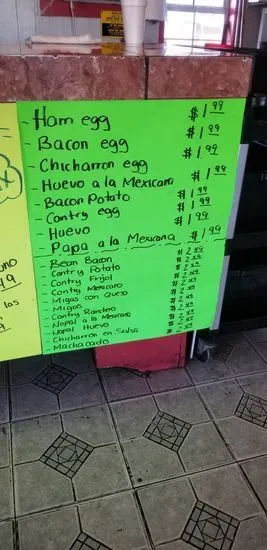 - Ham egg $1.99
- Bacon egg $1.99
- Chicharron egg $1.99
- Huevo a la Mexicana $1.99
- Bacon Potato $1.99
- Contry egg $1.99
- Huevo $1.99
- Papa a la Mexicana $1.99
- Bean Bacon $2.49
- Contry Potato $2.49
- Contry Frijol $2.49
- Contry Mexicano $2.49
- Migas con Queso $2.49
- Migas $2.49
- Contry Ranchero $2.49
- Nopal a la Mexicana $2.49
- Nopal Huevo $2.49
- Chicharron en Salsa $2.49
- Machacado $2.49
uno
49
las
9.